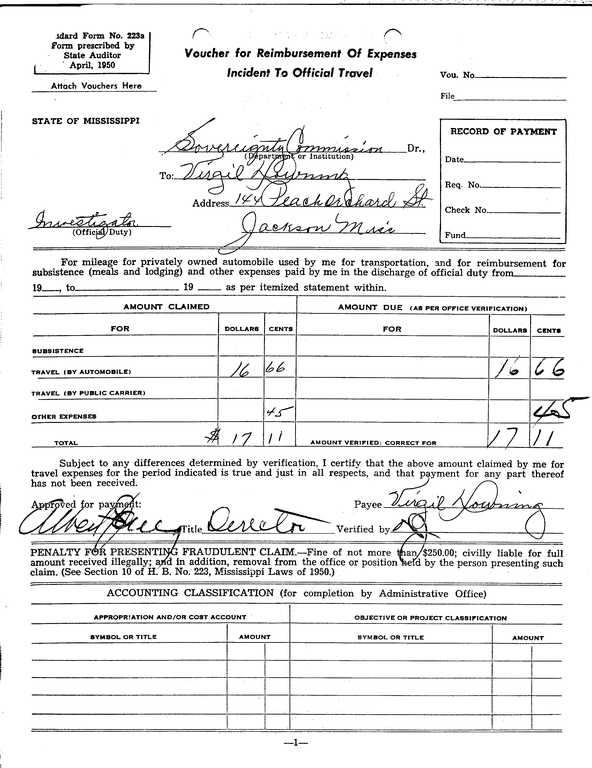 dard Form No. 223a
Form prescribed by
State Auditor
April, 1950
Attach Vouchers Here
Voucher for Reimbursement Of Expenses
Incident To Official Travel
Vou. No.
File
STATE OF MISSISSIPPI
Sovereignty Commission Dr.,
(Department or Institution)
To: Virgil Downing
Address 144 Peach Orchard St.
Jackson Miss
Investigator
(Official Duty)
RECORD OF PAYMENT
Date
Req. No.
Check No.
Fund
For mileage for privately owned automobile used by me for transportation, and for reimbursement for
subsistence (meals and lodging) and other expenses paid by me in the discharge of official duty from
19___, to 19___ as per itemized statement within.
AMOUNT CLAIMED AMOUNT DUE (AS PER OFFICE VERIFICATION)
FOR DOLLARS CENTS FOR DOLLARS CENTS
SUBSISTENCE
TRAVEL (BY AUTOMOBILE) 16 66 16 66
TRAVEL (BY PUBLIC CARRIER)
OTHER EXPENSES 45 45
TOTAL $ 17 11 AMOUNT VERIFIED: CORRECT FOR 17 11
Subject to any differences determined by verification, I certify that the above amount claimed by me for
travel expenses for the period indicated is true and just in all respects, and that payment for any part thereof
has not been received.
Approved for payment: Payee Virgil Downing
Albert Title Director Verified by
PENALTY FOR PRESENTING FRAUDULENT CLAIM.—Fine of not more than $250.00; civilly liable for full
amount received illegally; and in addition, removal from the office or position held by the person presenting such
claim. (See Section 10 of H. B. No. 223, Mississippi Laws of 1950.)
ACCOUNTING CLASSIFICATION (for completion by Administrative Office)
APPROPRIATION AND/OR COST ACCOUNT OBJECTIVE OR PROJECT CLASSIFICATION
SYMBOL OR TITLE AMOUNT SYMBOL OR TITLE AMOUNT
—1—